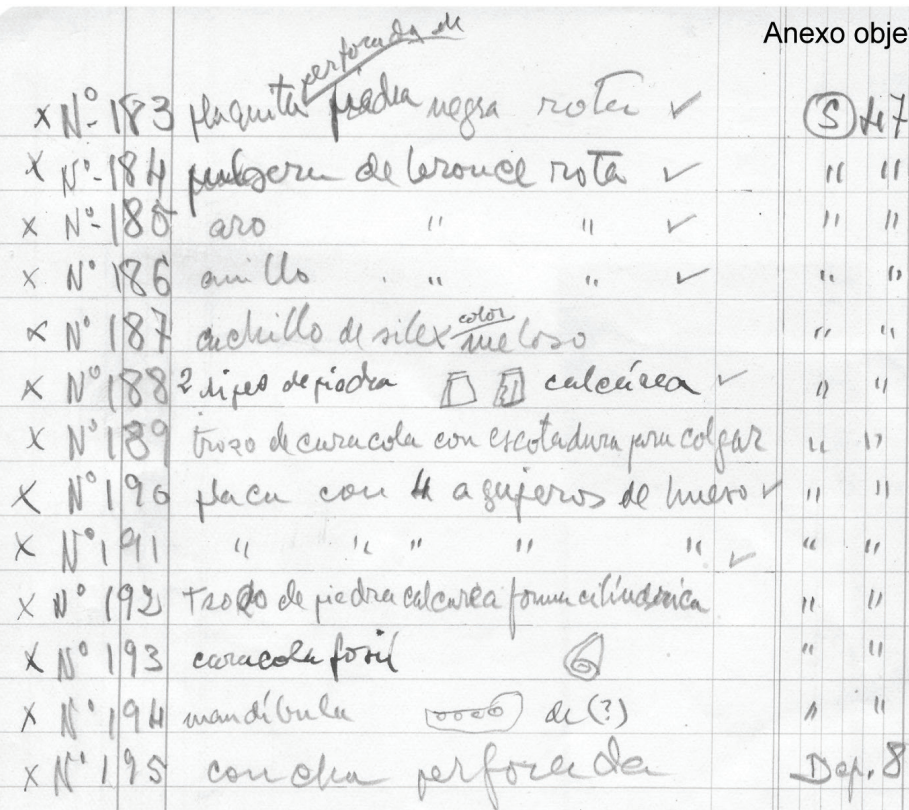 Anexo obje
perforada de
x Nº 183 plaquita piedra negra rota ✓ (S) 47
x Nº 184 pulsera de bronce rota ✓ " "
x Nº 185 aro " " ✓ " "
x Nº 186 anillo " " ✓ " "
x Nº 187 cuchillo de silex color meloso " "
x Nº 188 2 de piedra calcárea ✓ " "
x Nº 189 trozo de caracola con escotadura para colgar " "
x Nº 190 placa con 4 agujeros de hueso ✓ " "
x Nº 191 " " " " " ✓ " "
x Nº 192 trozo de piedra calcarea forma cilíndrica " "
x Nº 193 caracola fosil " "
x Nº 194 mandíbula de (?) " "
x Nº 195 concha perforada Dep. 8